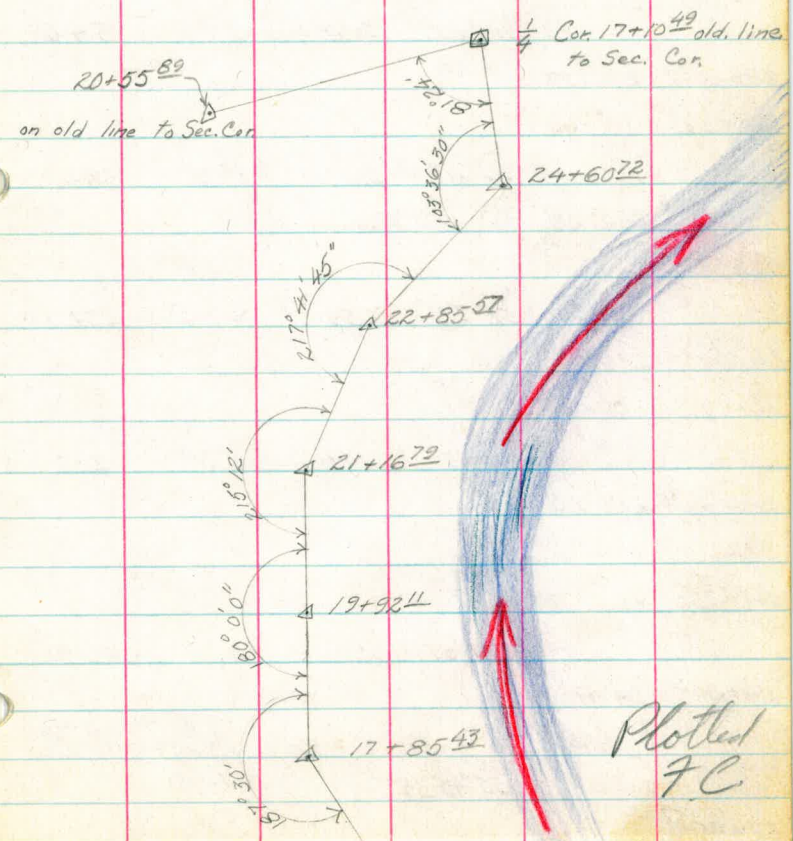 1/4 Cor. 17+10 49 old. line
to Sec. Cor.
20+55 89
on old line to Sec. Cor.
81°24'
103° 36' 30"
24+60 72
217° 41' 45"
22+85 57
21+16 79
215° 12'
19+92 11
180° 0' 0"
17+85 43
187° 30'
Plotted
FC